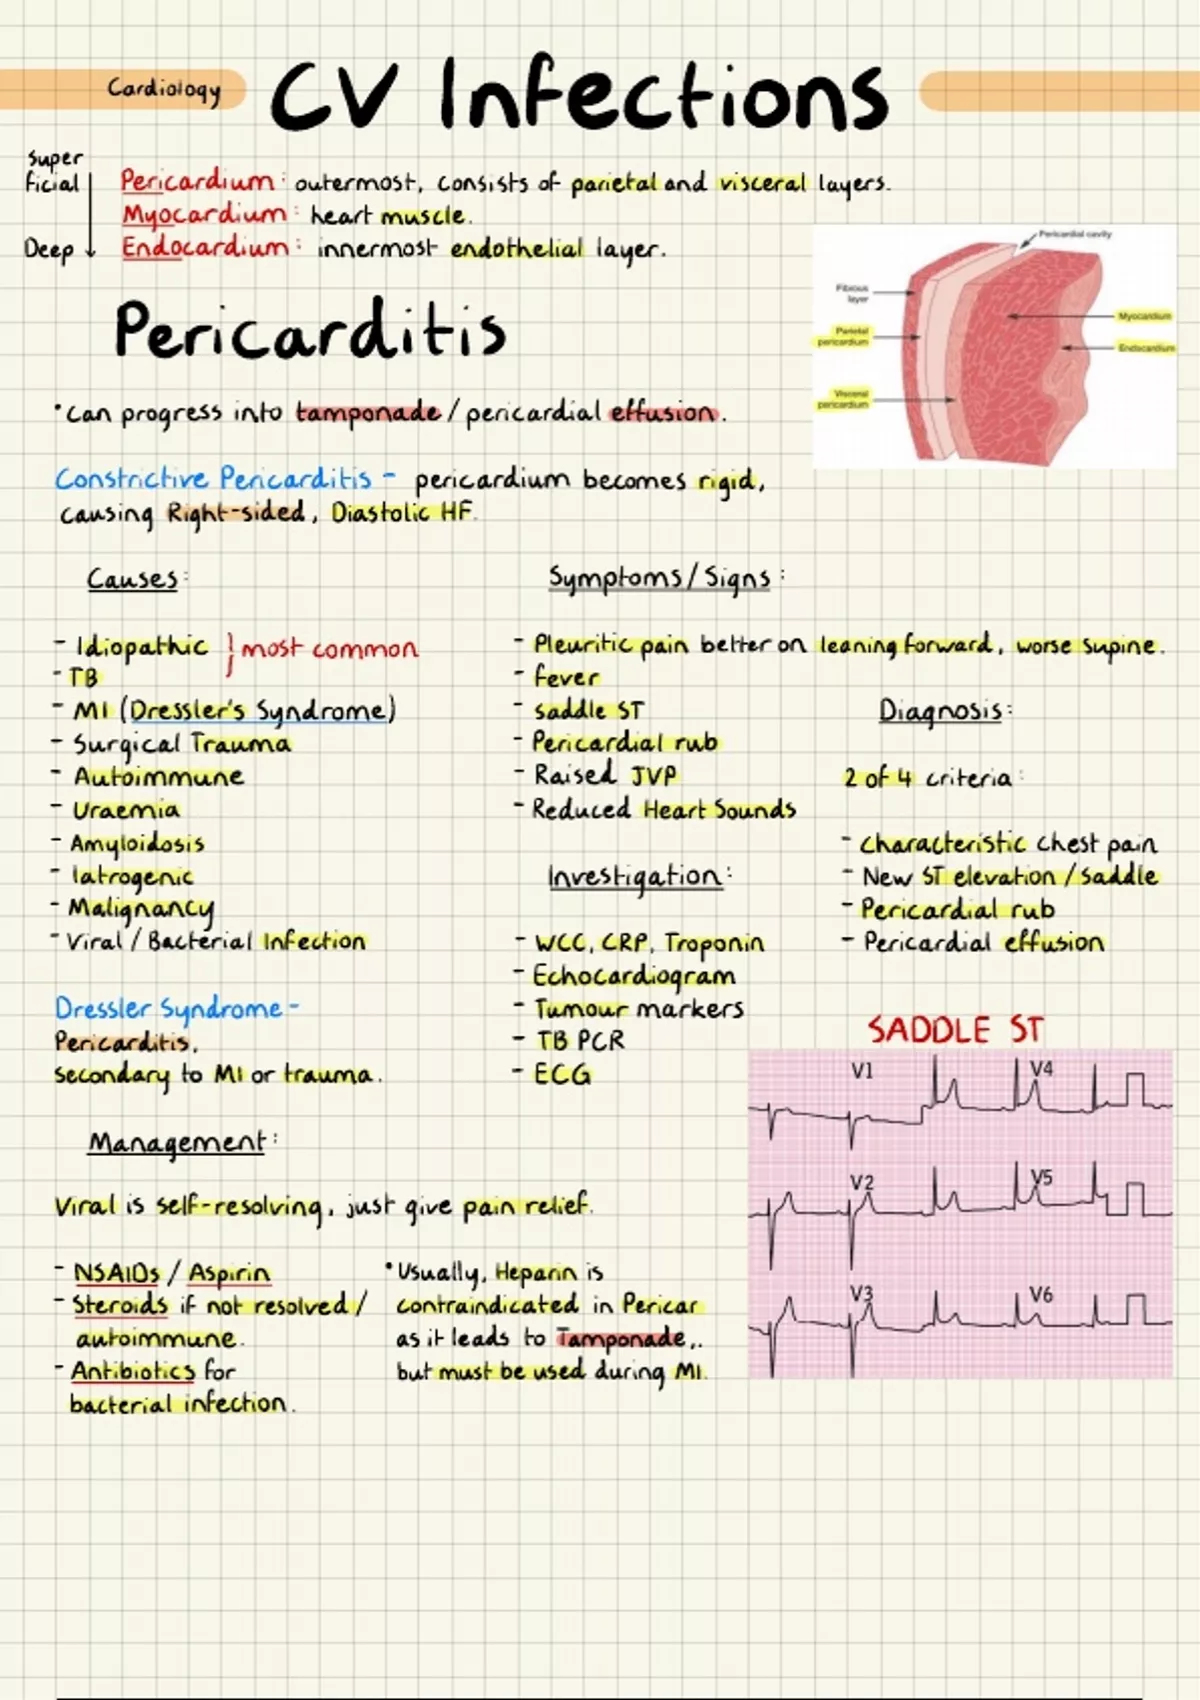 Cardiology
CV Infections
super
ficial
Deep
Pericardium: outermost, consists of parietal and visceral layers.
Myocardium: heart muscle.
Endocardium: innermost endothelial layer.
Pericardial cavity
Fibrous
layer
Parietal
pericardium
Visceral
pericardium
Myocardium
Endocardium
Pericarditis
• Can progress into tamponade / pericardial effusion.
Constrictive Pericarditis - pericardium becomes rigid,
causing Right-sided, Diastolic HF.
Causes:
- Idiopathic } most common
- TB
- MI (Dressler's Syndrome)
- Surgical Trauma
- Autoimmune
- Uraemia
- Amyloidosis
- Iatrogenic
- Malignancy
- Viral / Bacterial Infection
Dressler Syndrome -
Pericarditis,
secondary to MI or trauma.
Symptoms/Signs:
- Pleuritic pain better on leaning forward, worse supine.
- fever
- saddle ST
- Pericardial rub
- Raised JVP
- Reduced Heart Sounds
Investigation:
- WCC, CRP, Troponin
- Echocardiogram
- Tumour markers
- TB PCR
- ECG
Diagnosis:
2 of 4 criteria:
- Characteristic chest pain
- New ST elevation / saddle
- Pericardial rub
- Pericardial effusion
SADDLE ST
V1
V4
V2
V5
V3
V6
Management:
Viral is self-resolving, just give pain relief.
- NSAIDs / Aspirin
- Steroids if not resolved /
autoimmune.
- Antibiotics for
bacterial infection.
• Usually, Heparin is
contraindicated in Pericar
as it leads to Tamponade,.
but must be used during MI.